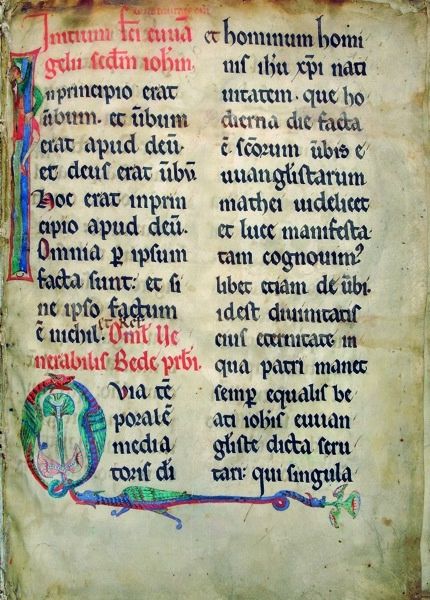 Initium sci euuā
gelii scdm iohm.
In principio erat
ūbum. et ūbum
erat apud deū.
et deus erat ūbū
Hoc erat in prin
cipio apud deū.
Omnia ꝑ ipsum
facta sunt: et si
ne ipso factum
ē nichil. Oml Ve
nerabilis Bede prbi.
Quia tē
poralē
media
toris di
et hominum homi
nis ihu xpi nati
uitatem. que ho
dierna die facta
ē scorum ūbis e
uuangelistarum
mathei uidelicet
et luce manifesta
tam cognouim᾽
libet etiam de ūbi.
id est diuinitatis
eius eternitate in
qua patri manet
semꝑ equalis be
ati iohis euuan
gliste dicta scru
tari: qui singula